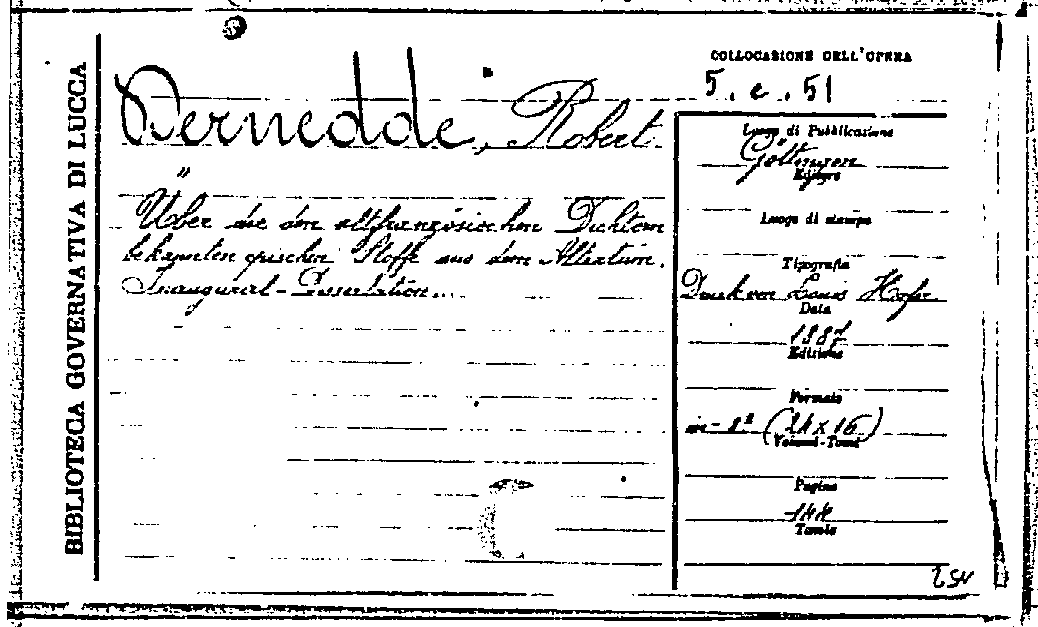 BIBLIOTECA GOVERNATIVA DI LUCCA
Dernedde, Robert
Über die den altfranzösischen Dichtern
bekannten epischen Stoffe aus dem Altertum.
Inaugural-Dissertation...
COLLOCAZIONE DELL'OPERA
5. e. 51
Luogo di Pubblicazione
Göttingen
Editore
Luogo di stampa
Tipografia
Druck von Louis Hofer
Data
1887
Edizione
Formato
in-8º (24 x 16)
Volumi-Tomi
Pagine
Tavole